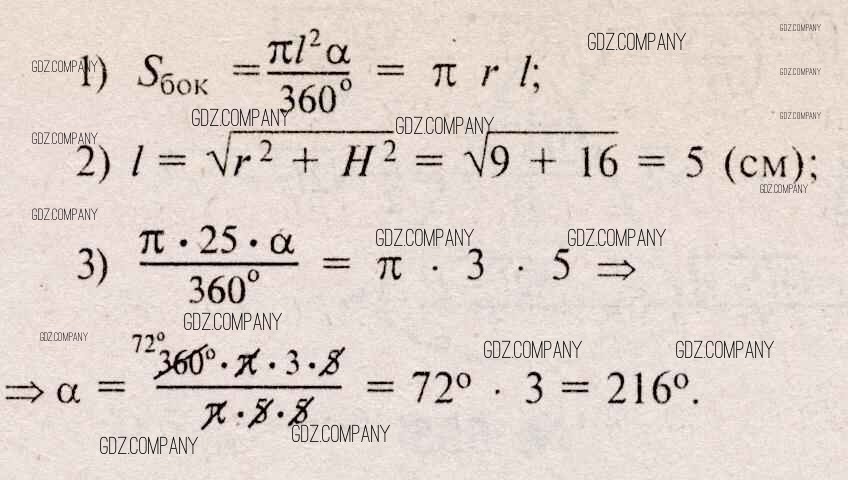 GDZ.COMPANY
GDZ.COMPANY
1) Sбок = πl²α / 360° = π r l;
GDZ.COMPANY
GDZ.COMPANY
GDZ.COMPANY
GDZ.COMPANY
GDZ.COMPANY
GDZ.COMPANY
2) l = √(r² + H²) = √(9 + 16) = 5 (см);
GDZ.COMPANY
GDZ.COMPANY
GDZ.COMPANY
GDZ.COMPANY
3) π · 25 · α / 360° = π · 3 · 5 ⇒
GDZ.COMPANY
GDZ.COMPANY
GDZ.COMPANY
GDZ.COMPANY
72°
⇒ α = 360° · π · 3 · 5 / π · 5 · 5 = 72° · 3 = 216°.
GDZ.COMPANY
GDZ.COMPANY